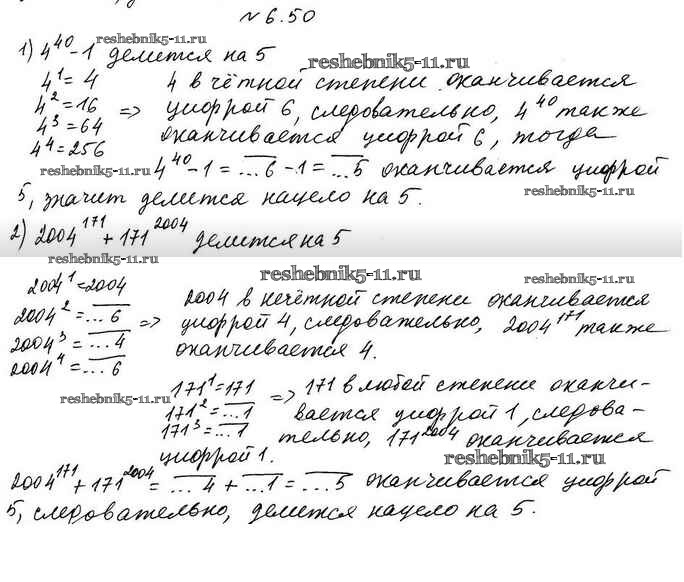 №6.50
reshebnik5-11.ru
1) 4^40 - 1 делится на 5
reshebnik5-11.ru
4^1 = 4 4 в чётной степени оканчивается
4^2 = 16 => цифрой 6, следовательно, 4^40 также
4^3 = 64 оканчивается цифрой 6, тогда
4^4 = 256
reshebnik5-11.ru
reshebnik5-11.ru
4^40 - 1 = ...6 - 1 = ...5 оканчивается цифрой
reshebnik5-11.ru
reshebnik5-11.ru
5, значит делится нацело на 5.
2) 2004^171 + 171^2004 делится на 5
reshebnik5-11.ru
reshebnik5-11.ru
reshebnik5-11.ru
2004^1 = 2004 2004 в нечётной степени оканчивается
2004^2 = ...6 => цифрой 4, следовательно, 2004^171 также
2004^3 = ...4 оканчивается 4.
2004^4 = ...6
reshebnik5-11.ru
171^1 = 171 => 171 в любой степени оканчи-
171^2 = ...1 вается цифрой 1, следова-
171^3 = ...1 тельно, 171^2004 оканчивается
цифрой 1.
reshebnik5-11.ru
2004^171 + 171^2004 = ...4 + ...1 = ...5 оканчивается цифрой
5, следовательно, делится нацело на 5.